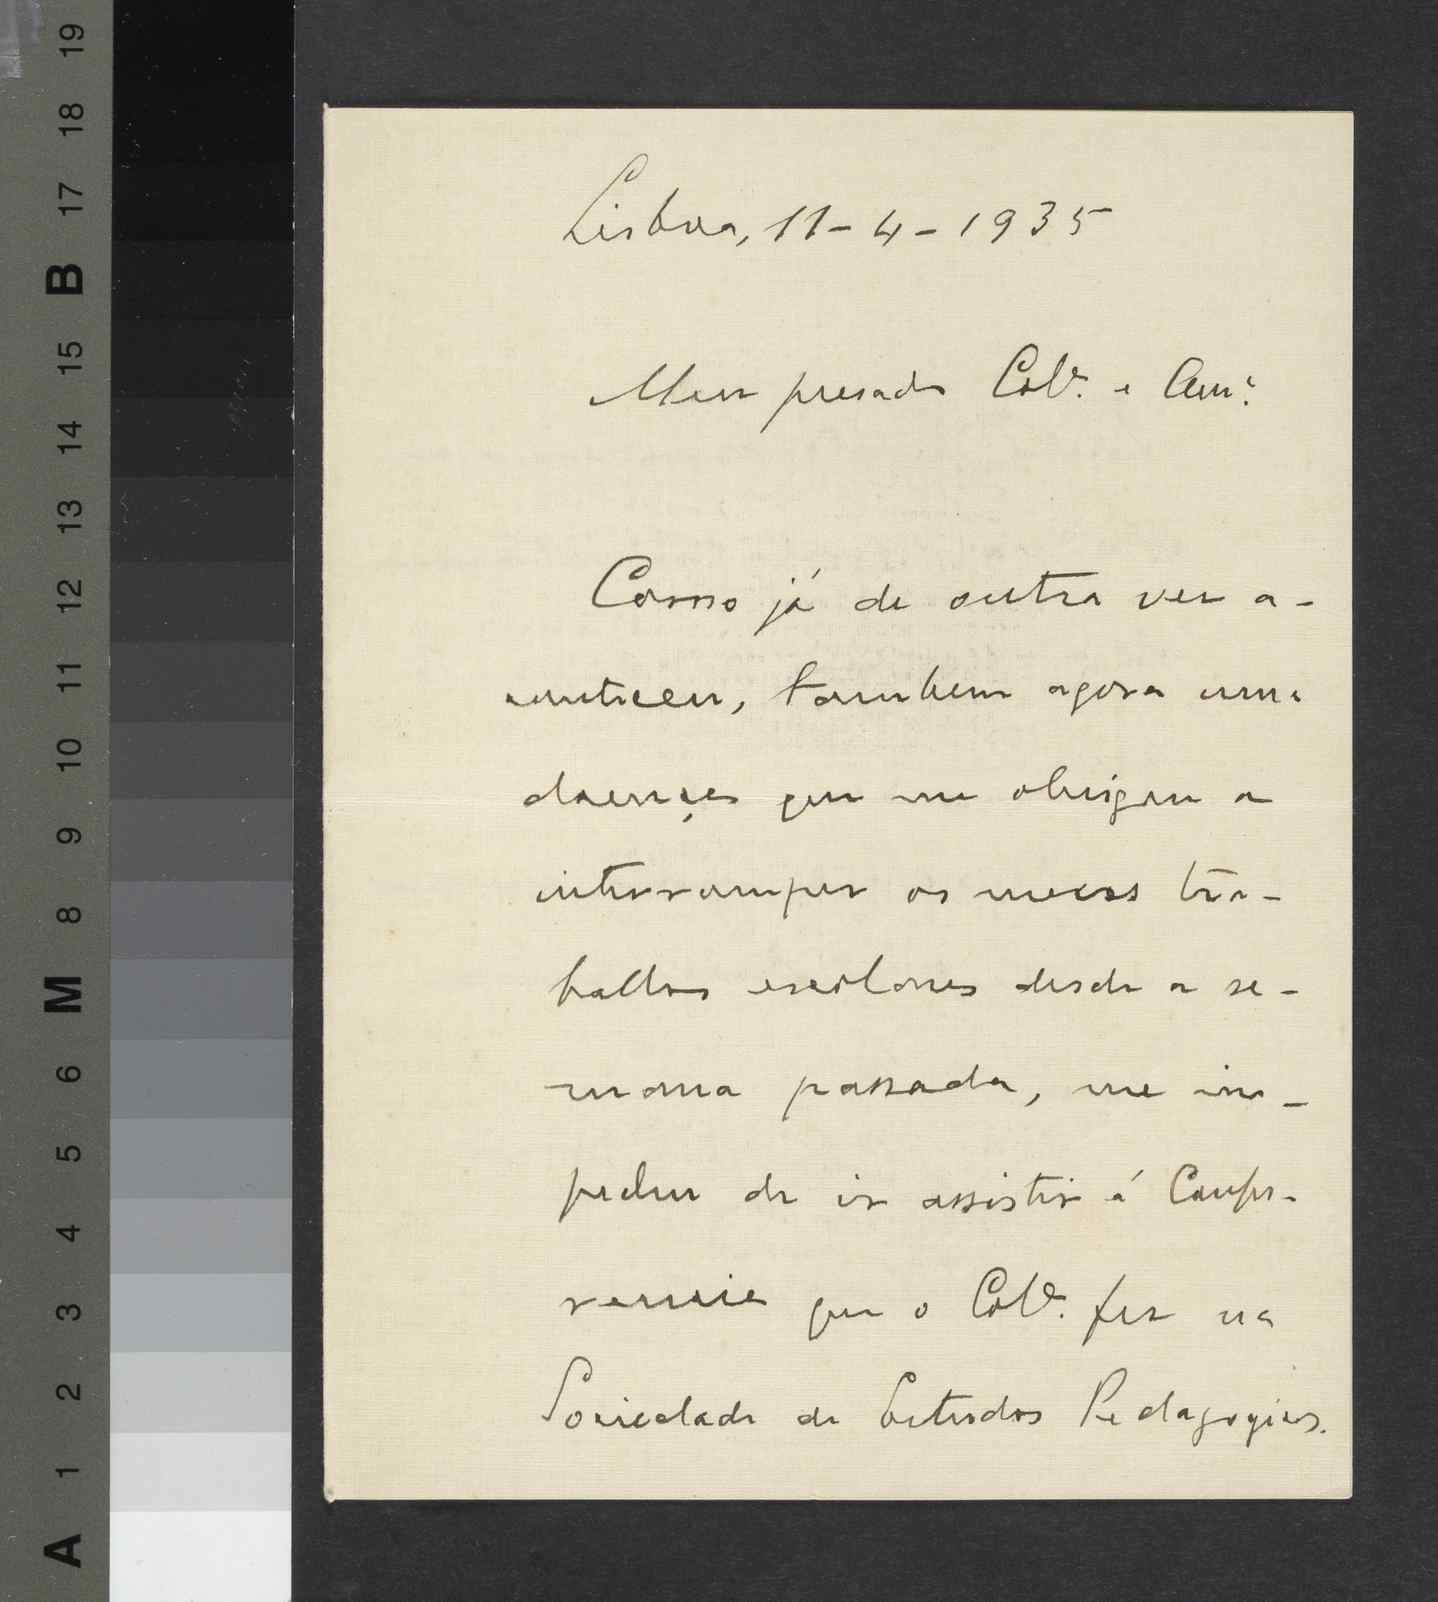 19
18
17
B
15
14
13
12
11
10
9
8
M
6
5
4
3
2
1
A
Lisboa, 11-4-1935
Meu presado Col.ª e Am.º
Como já de outra vez a-
conteceu, tambem agora uma
doença que me obrigou a
interromper os meus tra-
balhos escolares desde a se-
mana passada, me im-
pediu de ir assistir á Confe-
rencia que o Col.ª fez na
Sociedade de Estudos Pedagogicos.